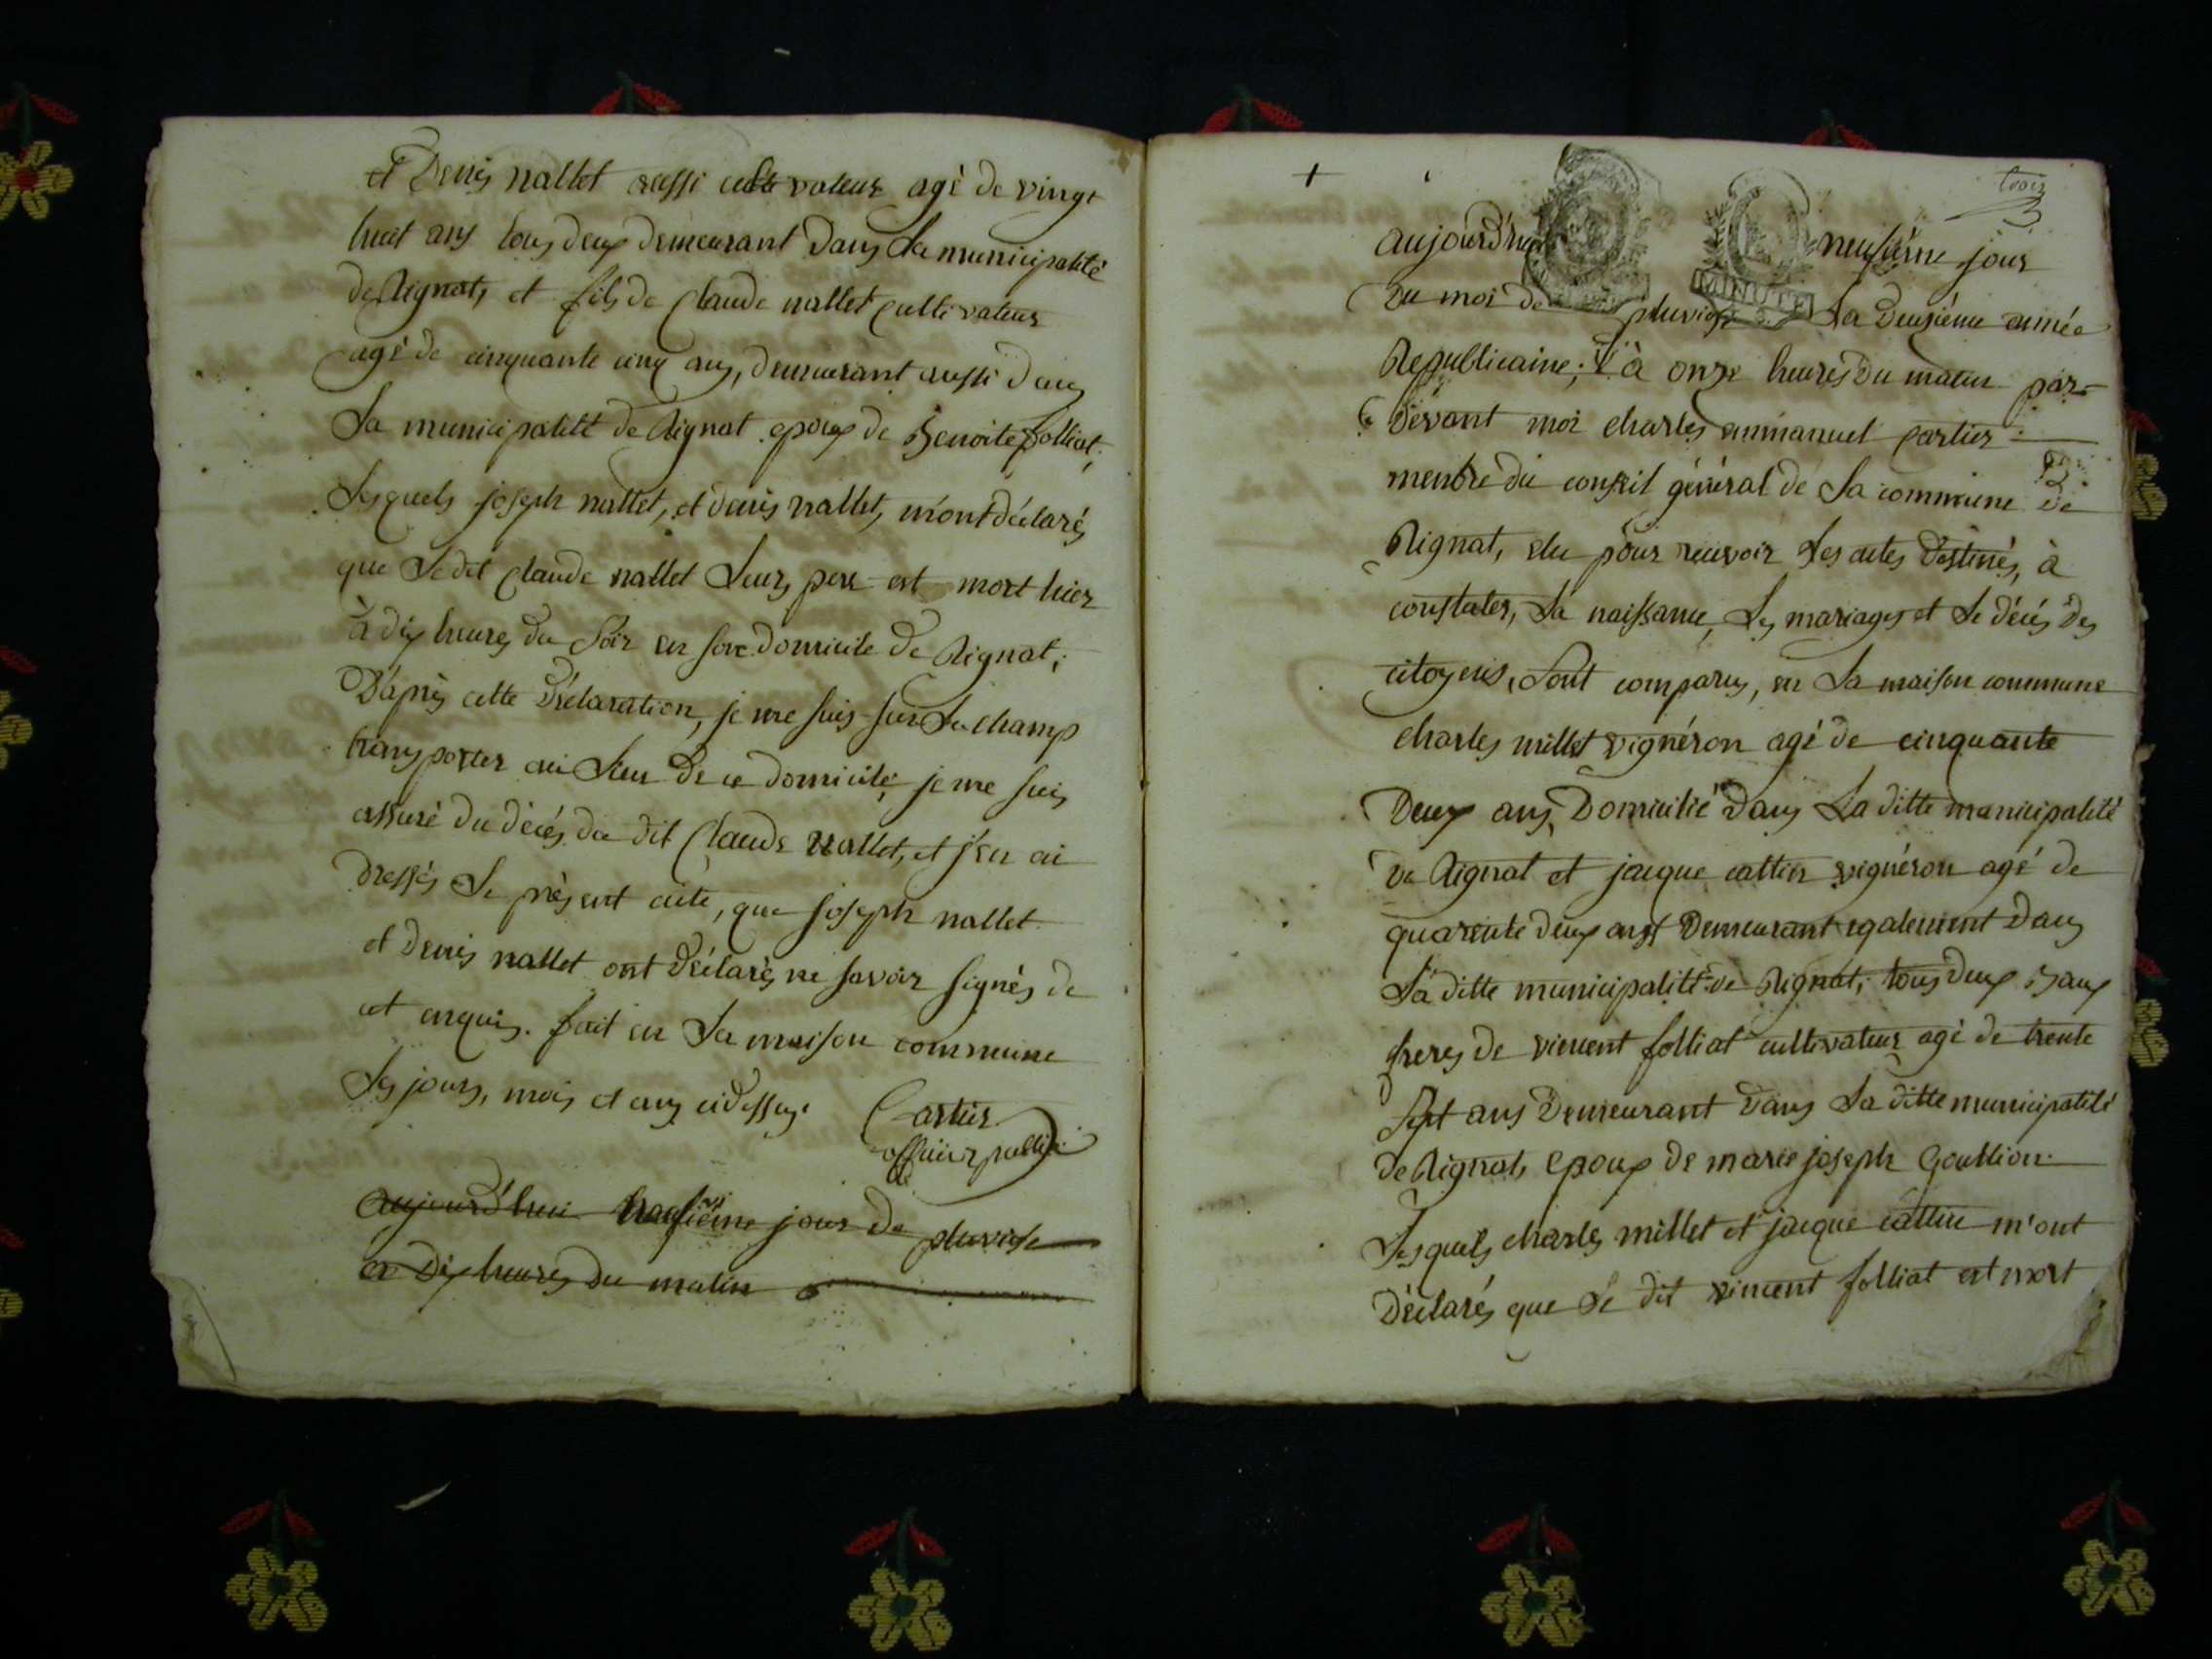 et Denis nallet aussi cultivateur agé de vingt
huit ans tous deux demeurant dans la municipalité
de Rignat, et fils de Claude nallet Cultivateur
agé de cinquante cinq ans, demeurant aussi dans
la municipalité de Rignat epoux de Benoite folliat;
lesquels joseph nallet, et denis nallet, m'ont déclarés
que le dit Claude nallet leurs pere est mort hier
à dix heures du soir en son domicile de Rignat;
D'après cette Déclaration, je me suis sur le champ
transporter au lieu de ce domicile; je me suis
assuré du décés du dit Claude nallet, et j'en ai
dressés le présent acte, que joseph nallet
et denis nallet ont déclarés ne savoir signés de
ct enquis. fait en la maison commune
les jours, mois et ans cidessus.
Cartier
officier public
aujourd'hui neufiéme jour de pluviose
a dix heures du matin
trois
aujourd'hui neufiéme jour
du moi de pluviose la deuxiéme année
Republicaine; à onze heures du matin par-
devant moi charles emmanuel Cartier
menbre du conseil général de la commune de
Rignat, elu pour recevoir les actes destinés, à
constater, la naissance, les mariages et le décés des
citoyens, sont comparus, en la maison commune
charles millet vignéron agé de cinquante
Deux ans, Domicilié dans La ditte municipalité
de Rignat et jacque cattin vignéron agé de
quarente deux ans Demeurant egalement dans
la ditte municipalité de Rignat; tous deux Baux
freres de vincent folliat cultivateur agé de trente
sept ans Demeurant dans la ditte municipalité
de Rignat, epoux de marie joseph Goullion
lesquels charles millet et jacque cattin m'ont
déclarés que le dit vincent folliat est mort
MINUTE